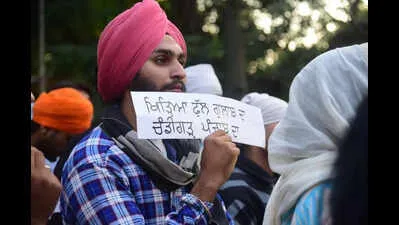 ਖਿੜਿਆ ਫੁੱਲ ਗੁਲਾਬ ਦਾ
ਚੰਡੀਗੜ੍ਹ ਪੰਜਾਬ ਦਾ